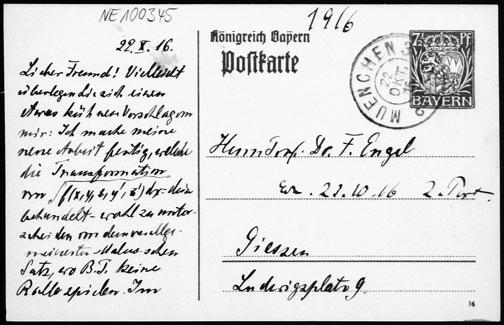 NE100345
1916
22.X.16.
Lieber Freund! Vielleicht
überlegen Sie sich einen
etwas kühnen Vorschlag von
mir: Ich mache meine
neue Arbeit fertig, welche
die Transformation
von ∫f(x,y,z,y',z')dx
behandelt – wohl zu unter-
scheiden von dem verallge-
meinerten Malus'schen
Satz, wo B.T. keine
Rolle spielen. Im
Königreich Bayern
Postkarte
7½ PF
BAYERN
MUENCHEN
22.
OKT.
Herrn Prof. Dr. F. Engel
22.10.16
Giessen
Ludwigsplatz 9.
16